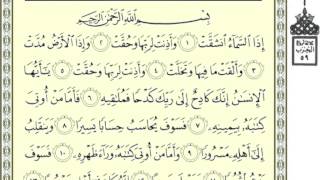 بِسْمِ اللَّهِ الرَّحْمَٰنِ الرَّحِيمِ
إِذَا السَّمَاءُ انشَقَّتْ ١ وَأَذِنَتْ لِرَبِّهَا وَحُقَّتْ ٢ وَإِذَا الْأَرْضُ مُدَّتْ
٣ وَأَلْقَتْ مَا فِيهَا وَتَخَلَّتْ ٤ وَأَذِنَتْ لِرَبِّهَا وَحُقَّتْ ٥ يَٰأَيُّهَا
الْإِنسَٰنُ إِنَّكَ كَادِحٌ إِلَىٰ رَبِّكَ كَدْحًا فَمُلَٰقِيهِ ٦ فَأَمَّا مَنْ أُوتِيَ
كِتَٰبَهُ بِيَمِينِهِ ٧ فَسَوْفَ يُحَاسَبُ حِسَابًا يَسِيرًا ٨ وَيَنقَلِبُ
إِلَىٰ أَهْلِهِ مَسْرُورًا ٩ وَأَمَّا مَنْ أُوتِيَ كِتَٰبَهُ وَرَاءَ ظَهْرِهِ ١٠ فَسَوْفَ
الحزب
٥٩